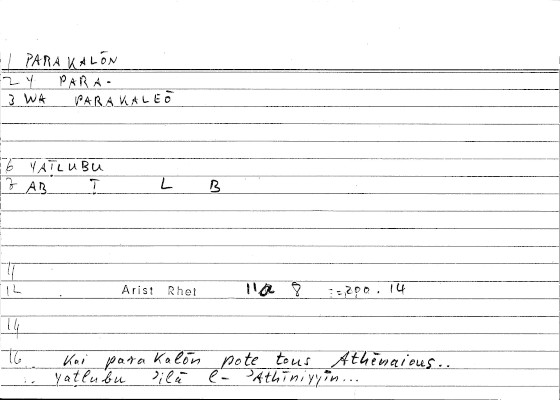 1 PARAKALŌN
2 Y PARA-
3 WA PARAKALEŌ
6 YAṬLUBU
7 AB Ṭ L B
11
12 Arist Rhet 11a 8 :=200.14
14
16 Kai parakalōn pote tous Athēnaious..
yaṭlubu ʾilā l- ʾAthīniyyīn...